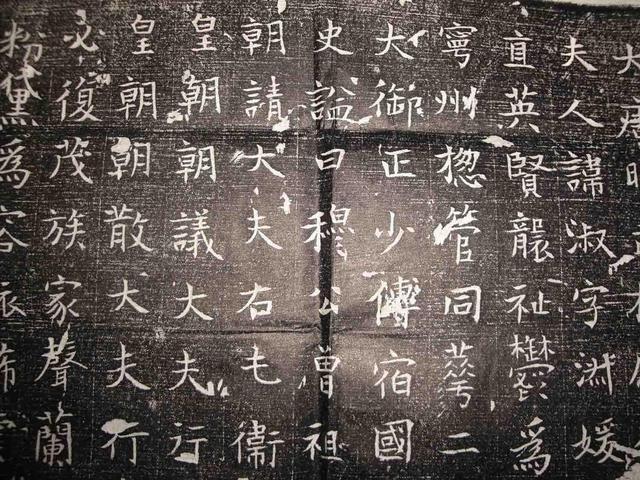 大唐
夫人諱淑字媛
宜英賢襲祉鬱為
寧州揔管同華二
大御正少傅宿國
史謚曰穆公曾祖
朝請大夫右屯衛
皇朝朝議大夫行
皇朝朝散大夫行
必復茂族家聲蘭
粉黛為容